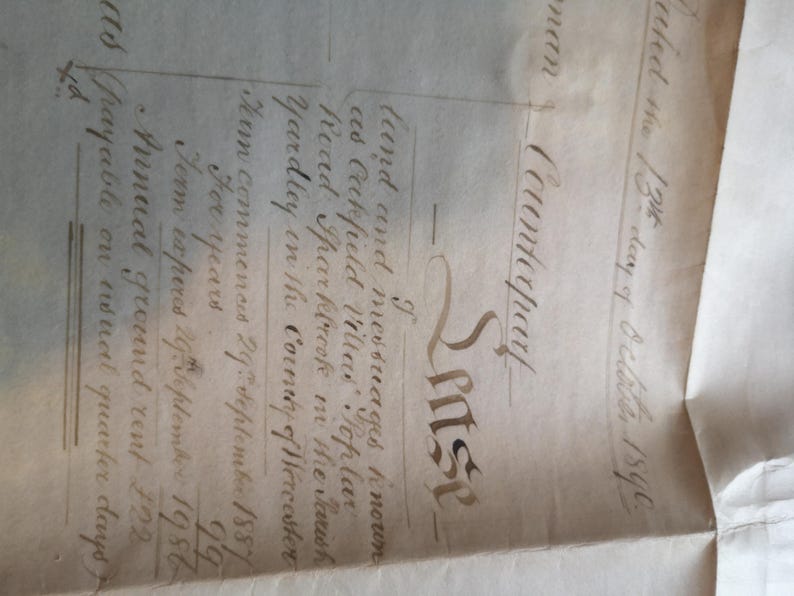 Dated the 13th day of October 1890.
man &
Counterpart
Lease
of
land and messuages known
as Oakfield Villas Poplar
Road Sparkbrook in the Parish
Yardley in the County of Worcester
Term commences 29th September 1887
For years 99
Term expires 29th September 1986
Annual ground rent £22
(payable on usual quarter days)